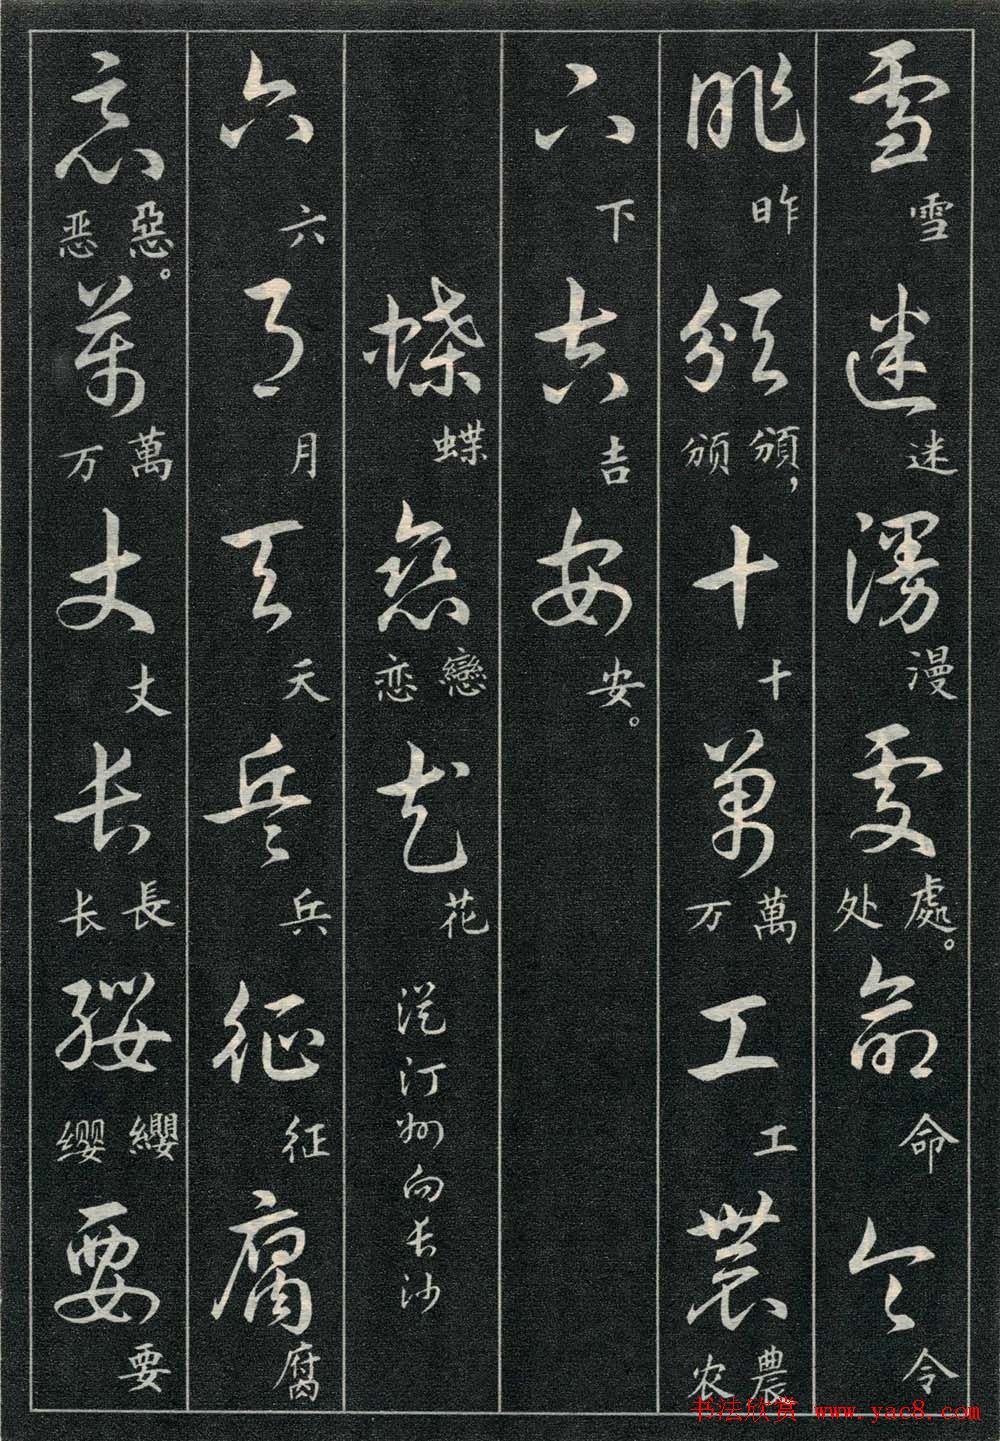 雪 雪 迷 迷 漫 漫 處 處。 处 命 命 令 令
昨 昨 頒 頒， 颁 十 十 萬 萬 万 工 工 農 農 农
下 下 吉 吉 安 安。
蝶 蝶 戀 戀 恋 花 花 從汀州向長沙
六 六 月 月 天 天 兵 兵 征 征 腐 腐
惡 惡。 恶 萬 萬 万 丈 丈 長 長 长 纓 纓 缨 要 要
书法欣赏 www.yac8.com